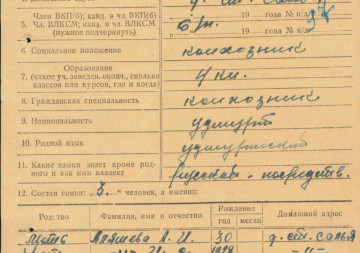 Член ВКП(б); канд. и чл. ВКП(б)
5. Чл. ВЛКСМ; канд. в чл. ВЛКСМ б/п. 19 года № п/б
(нужное подчеркнуть) 19 года № п/б
6. Социальное положение колхозник
7. Образование 4 кл.
(какое уч. заведен. оконч., сколько
классов или курсов, где и когда)
8. Гражданская специальность колхозник
9. Национальность удмурт
10. Родной язык удмуртский
11. Какие языки знает кроме род-
ного и как ими владеет русский - посредств.
12. Состав семьи: „3" человек, а именно:
Родство Фамилия, имя и отчество Рождение Домашний адрес
год месяц
мать 30 д. ст.